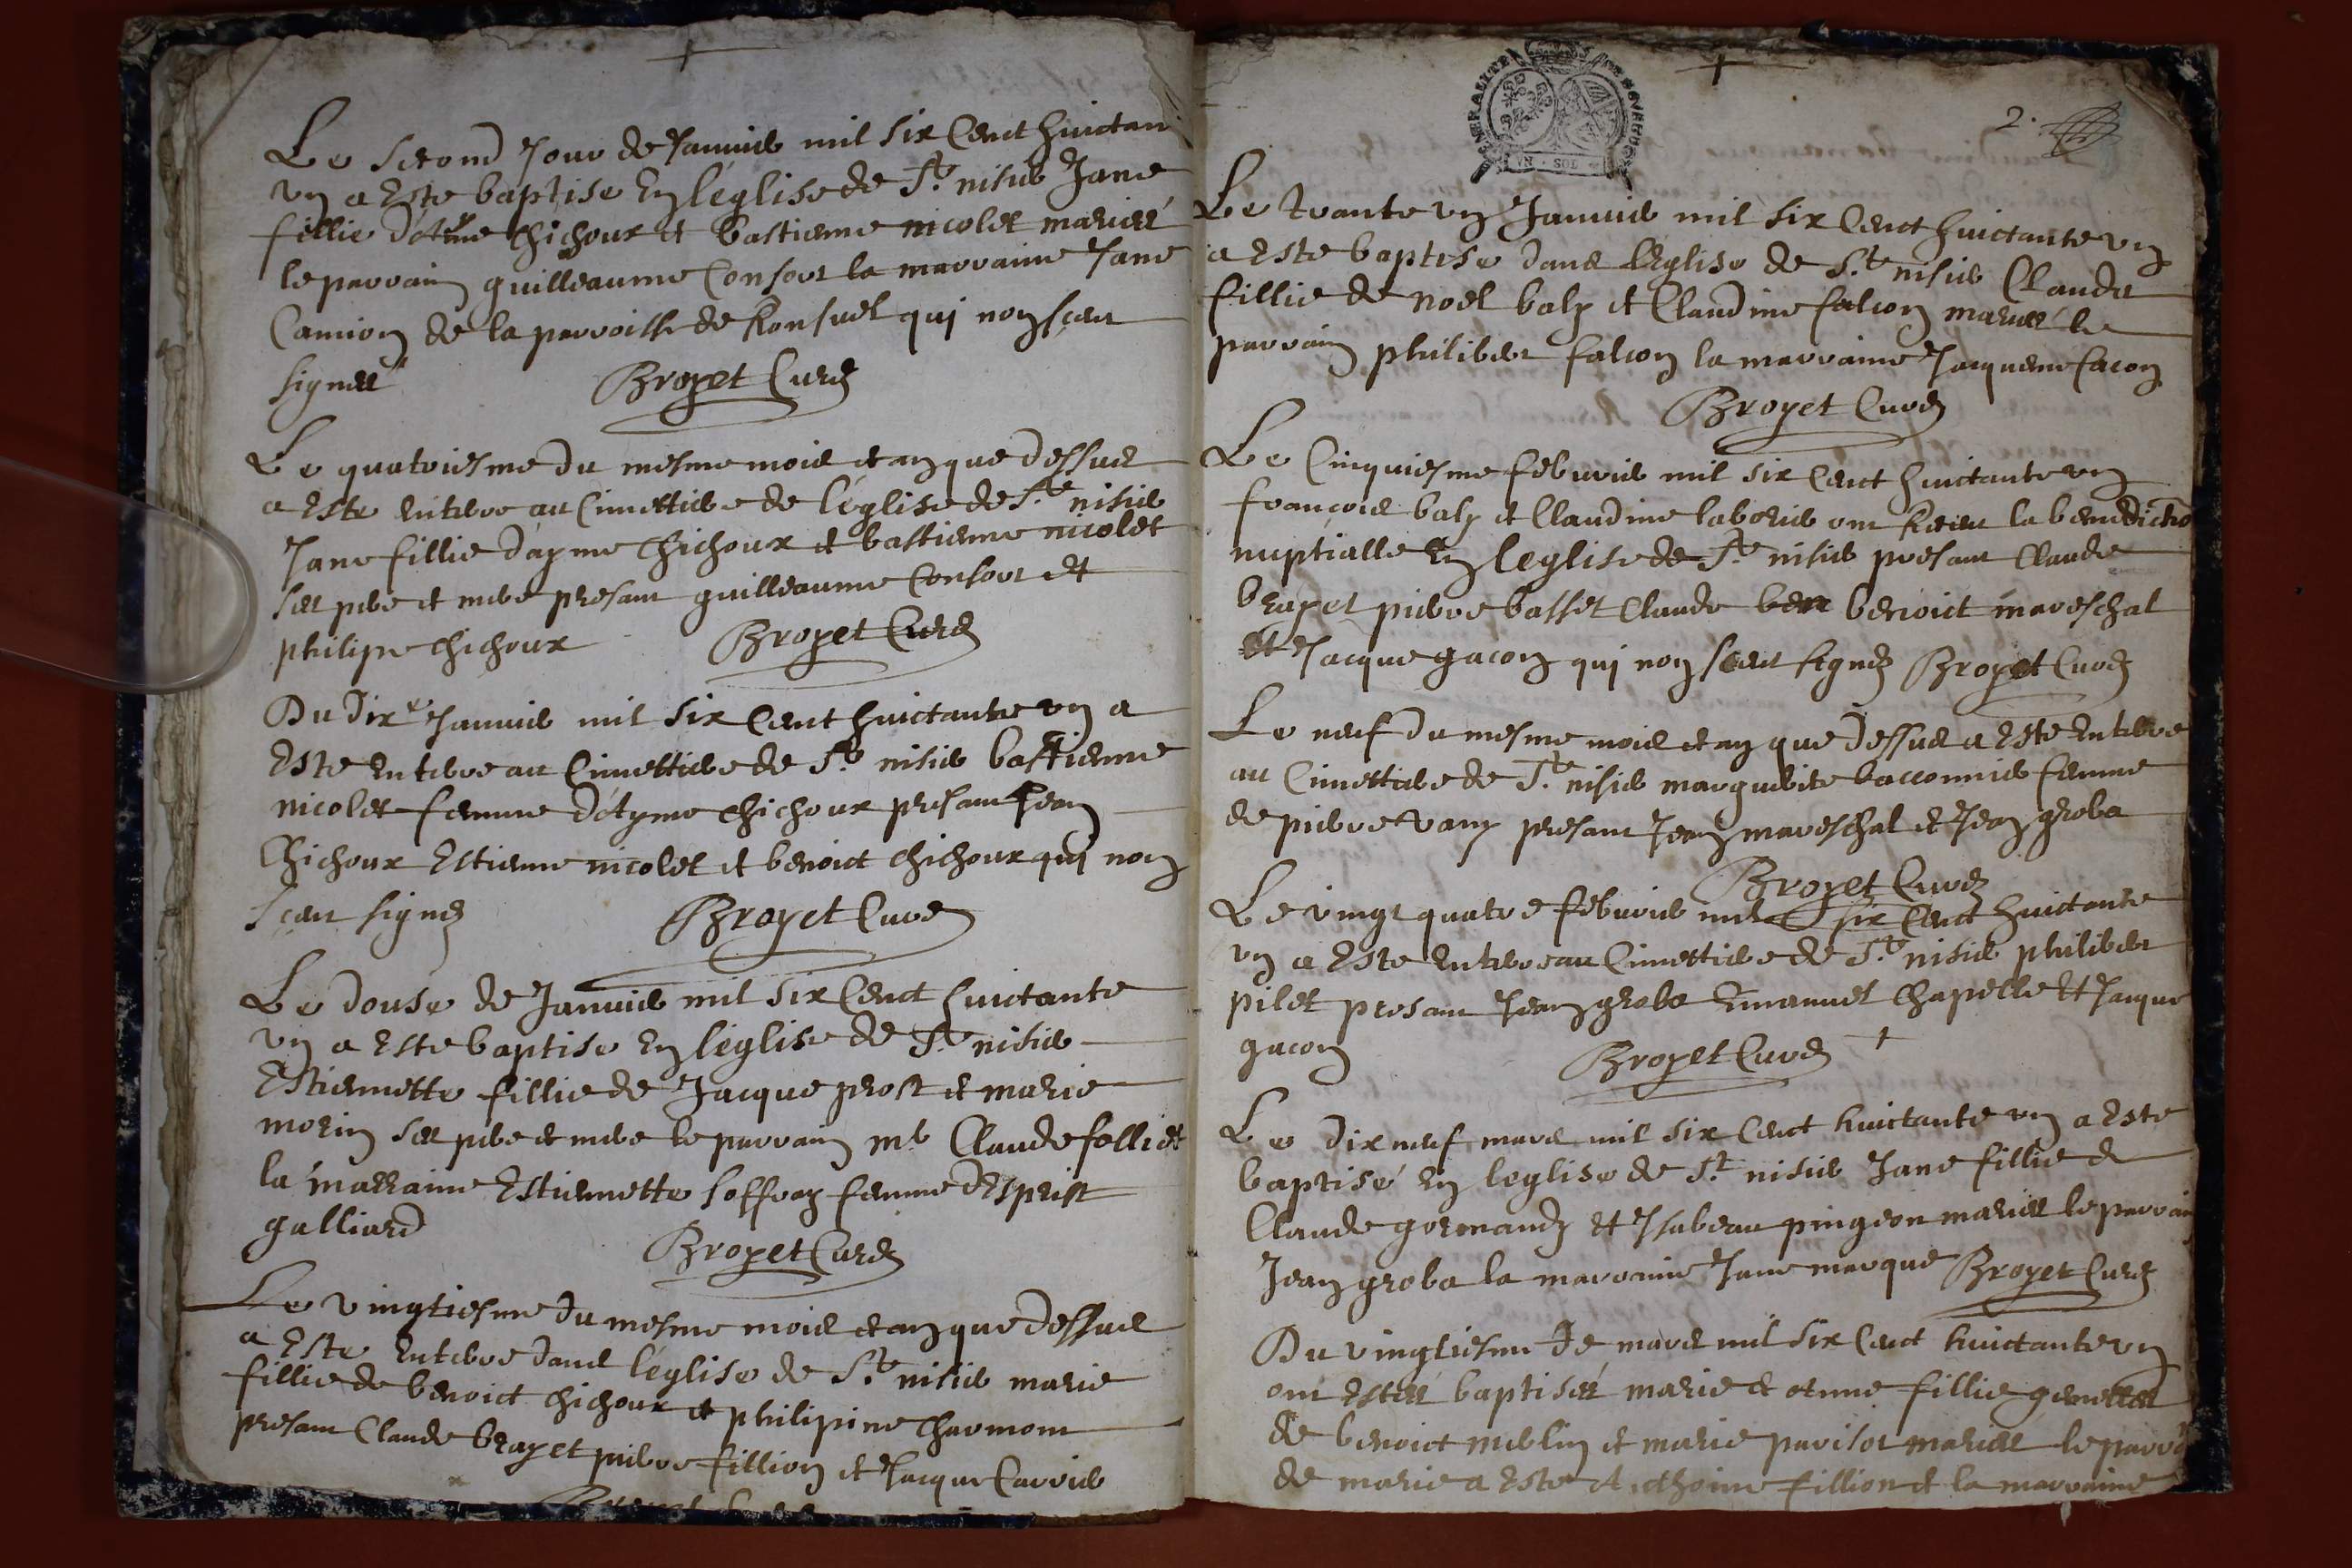 Le second Jour de Januier mil six Cent huictan
vn a Este baptise En léglise de St nisier Jane
fillie d'Ayme Chichoux et bastienne nicolet mariés
le parrain guilleaume Consort la marraine Jane
Camion de la parroisse de Ronsuel qui non sceu
signer Broyet Curé
Le quatriesme du mesme mois et an que dessus
a Este enterre au Cimettiere de l'église de St nisier
Jane fillie d'ayme Chichoux et bastienne nicolet
ses pere et mere presant guilleaume Consort et
philipe Chichoux Broyet Curé
Du dixe Januier mil six Cent huictante vn a
Este enterre au Cimettiere de St nisier bastienne
nicolet femme d'Ayme Chichoux presant Jean
Chichoux Estienne nicolet et benoict Chichoux qui non
sceu signé Broyet Curé
Le douse de Januier mil six Cent huictante
vn a Este baptise En léglise de St nisier
Estiennette fillie de Jacque prost et marie
morin ses pere et mere le parrain mr Claude folliet
la marraine Estiennette soffray femme d'Esprist
galliard Broyet Curé
Le vingtiesme du mesme mois et an que dessus
a Este enterre dans l'église de St nisier marie
fillie de benoict Chichoux et philipine Charmont
presant Claude brayet pierre fillion et Jacque Carrier
Broyet Curé
GENERALITE DE BOVRGOGNE
VN · SOL
2.
Le trante vn Januier mil six Cent huictante vn
a Este baptise dans l'Eglise de St nisier Claude
fillie de noel baly et Claudine falcon mariés le
parrain philibert falcon la marraine Jacqueme facon
Broyet Curé
Le Cinquiesme feburier mil six Cent huictante vn
françois baly et Claudine laborier ont Receu la benedictio
nuptialle En leglise de St nisier presant Claude
brayet pierre basset Claude ber benoict mareschal
et Jacque gacon qui non sceu signé Broyet Curé
Le neuf du mesme mois et an que dessus a Este enterre
au Cimettiere de St nisier marguerite bacconnier femme
de pierre vany presant Jean mareschal et Jean groba
Broyet Curé
Le vingt quatre feburier mil six Cent huictante
vn a Este enterre au Cimettiere de St nisier philibert
pilet presant Jean groba Emanuel Chapelle et Jacque
gacon Broyet Curé
Le dix neuf mars mil six Cent huictante vn a Este
baptisé En leglise de St nisier Jane fillie de
Claude gormand et Isabeau pingeon mariés le parrain
Jean groba la marraine Jane marque Broyet Curé
Du vingtiesme de mars mil six Cent huictante vn
ont Estés baptisés marie et anne fillie gemelles
de benoict merlin et marie parisot mariés le parrain
de marie a Este Anthoine fillion et la marraine